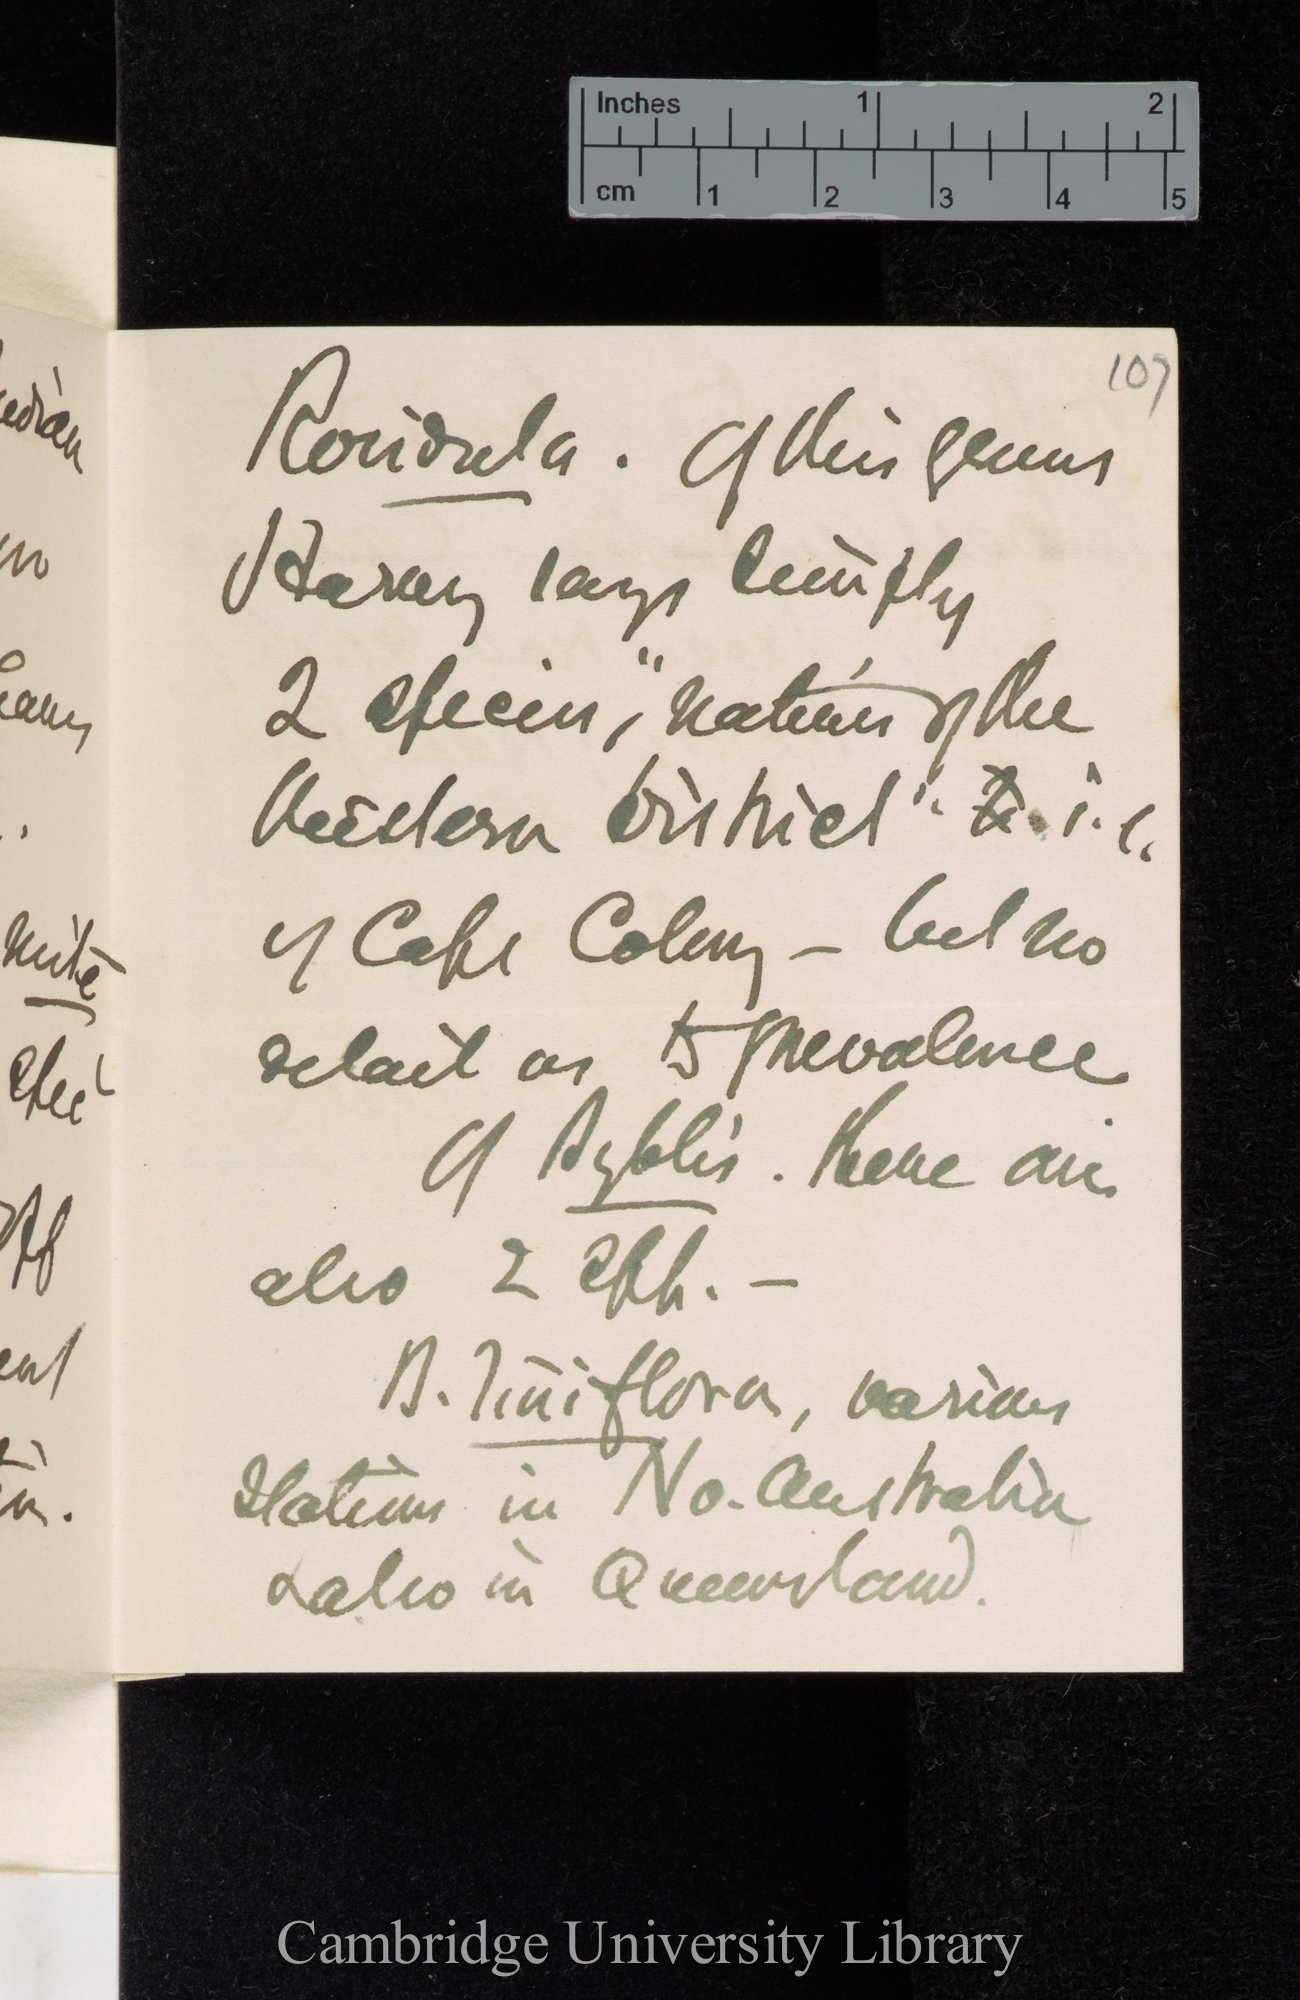 Inches 1 2
cm 1 2 3 4 5
107
Roridula. Of this genus
Harvey says simply
2 species, "natives of the
Western district". i.e.
of Cape Colony — but no
detail as to prevalence
Of Byblis. there are
also 2 spp. —
B. liniflora, various
stations in No. Australia
& also in Queensland.
Cambridge University Library